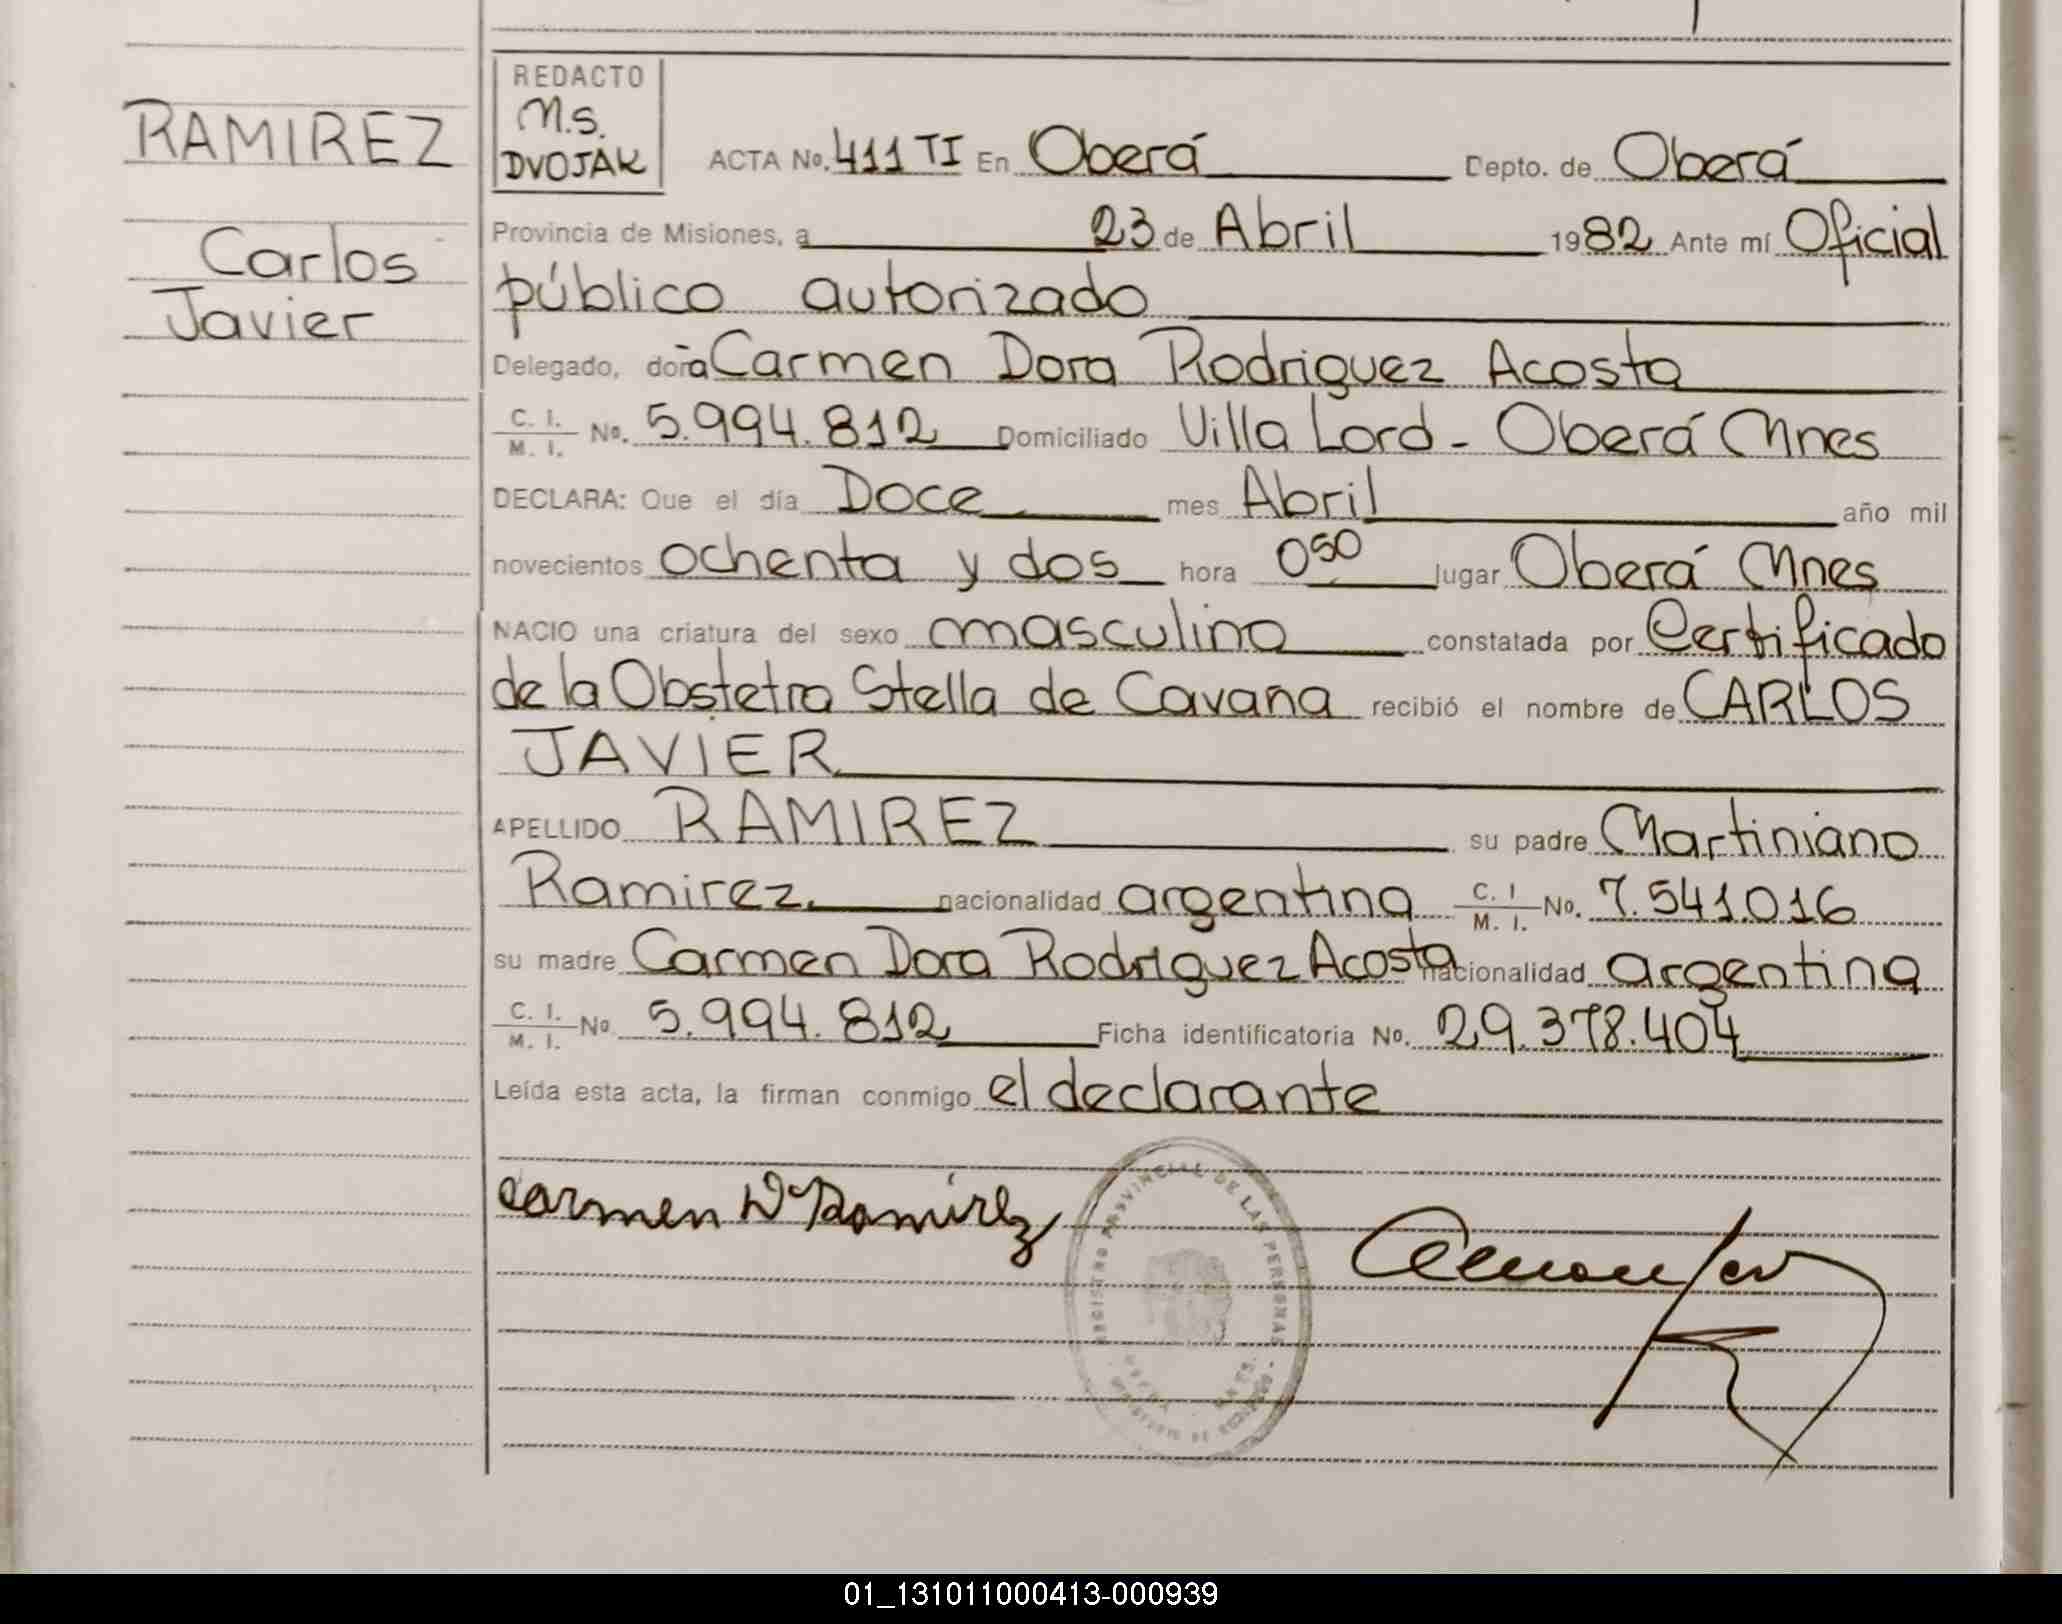 RAMIREZ
Carlos
Javier
REDACTO
M.S.
DVOJAK
ACTA No. 411 TI En Oberá Depto. de Oberá
Provincia de Misiones, a 23 de Abril 1982 Ante mí Oficial
público autorizado
Delegado, doña Carmen Dora Rodriguez Acosta
C. I. M. I. No. 5.994.812 Domiciliado Villa Lord - Oberá Mnes
DECLARA: Que el día Doce mes Abril año mil
novecientos ochenta y dos hora 0 50 lugar Oberá Mnes
NACIO una criatura del sexo masculino constatada por Certificado
de la Obstetra Stella de Cavana recibió el nombre de CARLOS
JAVIER
APELLIDO RAMIREZ su padre Martiniano
Ramirez nacionalidad argentina C. I M. I. No. 7.541.016
su madre Carmen Dora Rodriguez Acosta nacionalidad argentina
C. I. M. I. No 5.994.812 Ficha identificatoria No. 29.378.404
Leída esta acta, la firman conmigo el declarante
Carmen D Ramirez
REGISTRO PROVINCIAL DE LAS PERSONAS
01_131011000413-000939